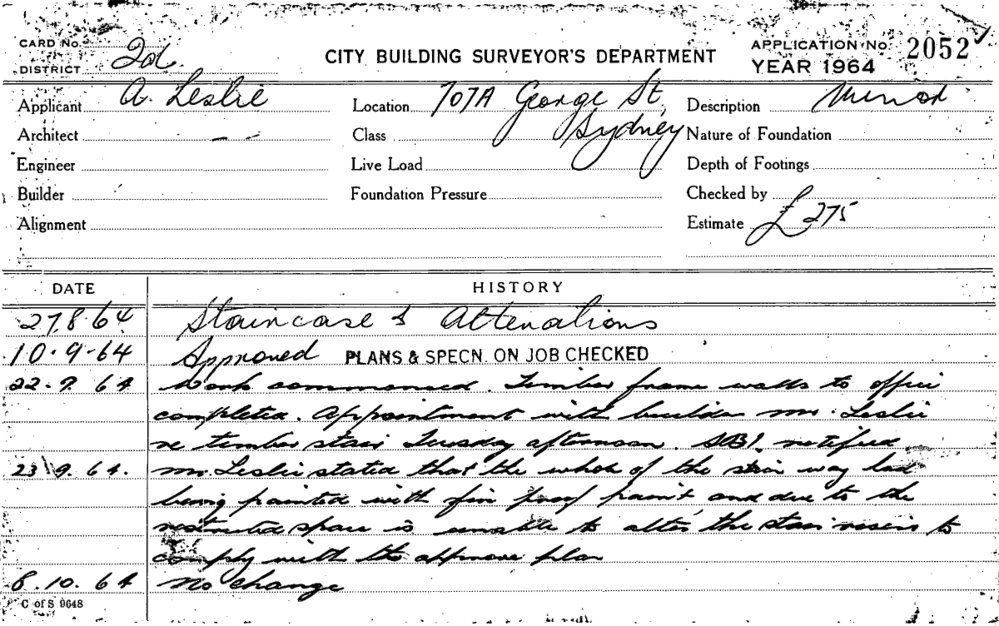 CARD No.
DISTRICT 2d.
CITY BUILDING SURVEYOR'S DEPARTMENT
APPLICATION No. 2052
YEAR 1964
Applicant A. Leslie
Location 707A George St, Sydney
Description Minor
Architect — —
Class
Nature of Foundation
Engineer
Live Load
Depth of Footings
Builder
Foundation Pressure
Checked by
Alignment
Estimate £275
DATE HISTORY
27.8.64 Staircase & Alterations
10.9-64 Approved PLANS & SPECN. ON JOB CHECKED
22.9.64 Work commenced. Timber frame walls to office
completed. Appointment with builder Mr. Leslie
re timber stair Tuesday afternoon. SBI notified
23.9.64. Mr Leslie stated that the whole of the stair way had
being painted with fire proof paint and due to the
restricted space is unable to alter the stair risers to
comply with the approve plan
8.10.64 No change
C of S 9648